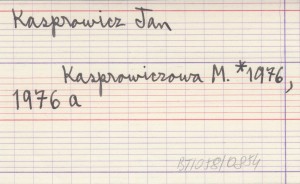 Kasprowicz Jan
Kasprowiczowa M. *1976,
1976 a